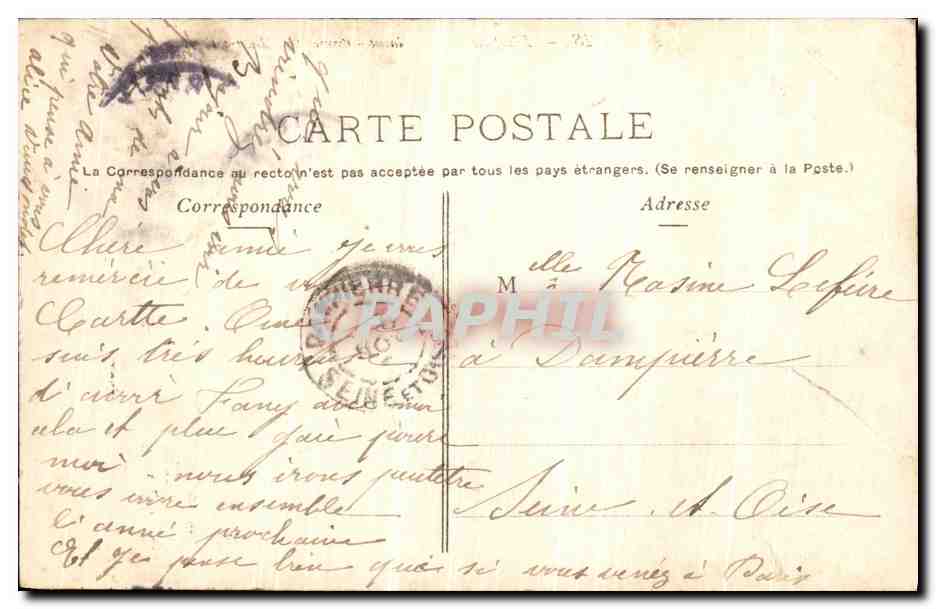 CARTE POSTALE
La Correspondance au recto n'est pas acceptée par tous les pays étrangers. (Se renseigner à la Poste.)
Correspondance
Adresse
Chère amie je vous
remércie de
Cartte.
suis très heureuse
d'avoir Fany avec moi
cela et plus gaie pour
moi. nous irons peutetre
vous voire ensemble
l'année prochaine
Et je pense bien que si vous venéz à Paris
vous
de
Votre Amie
qui pense à vous
alice
Melle Rosine Lefévre
à Dampièrre
Seine et Oise
DAMPIERRE
SEINE ET OISE
CPAPHIL